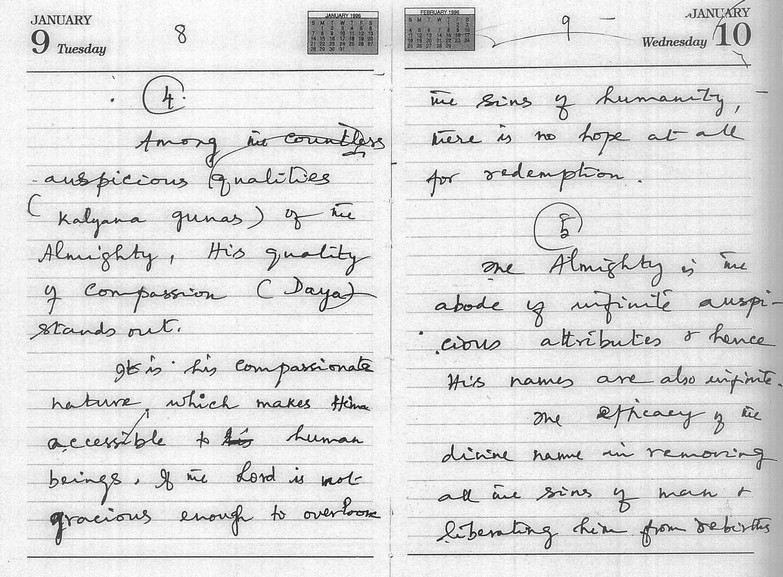 JANUARY
9 Tuesday
8
JANUARY 1996
4
Among the countless
auspicious qualities
(Kalyana gunas) of the
Almighty, His quality
of compassion (Daya)
stands out.
It is his compassionate
nature which makes Him
accessible to his human
beings. If the Lord is not
gracious enough to overlook
FEBRUARY 1996
9
JANUARY
Wednesday 10
the sins of humanity,
there is no hope at all
for redemption.
5
The Almighty is the
abode of infinite auspi-
cious attributes & hence
His names are also infinite.
The efficacy of the
divine name in removing
all the sins of man &
liberating him from rebirths